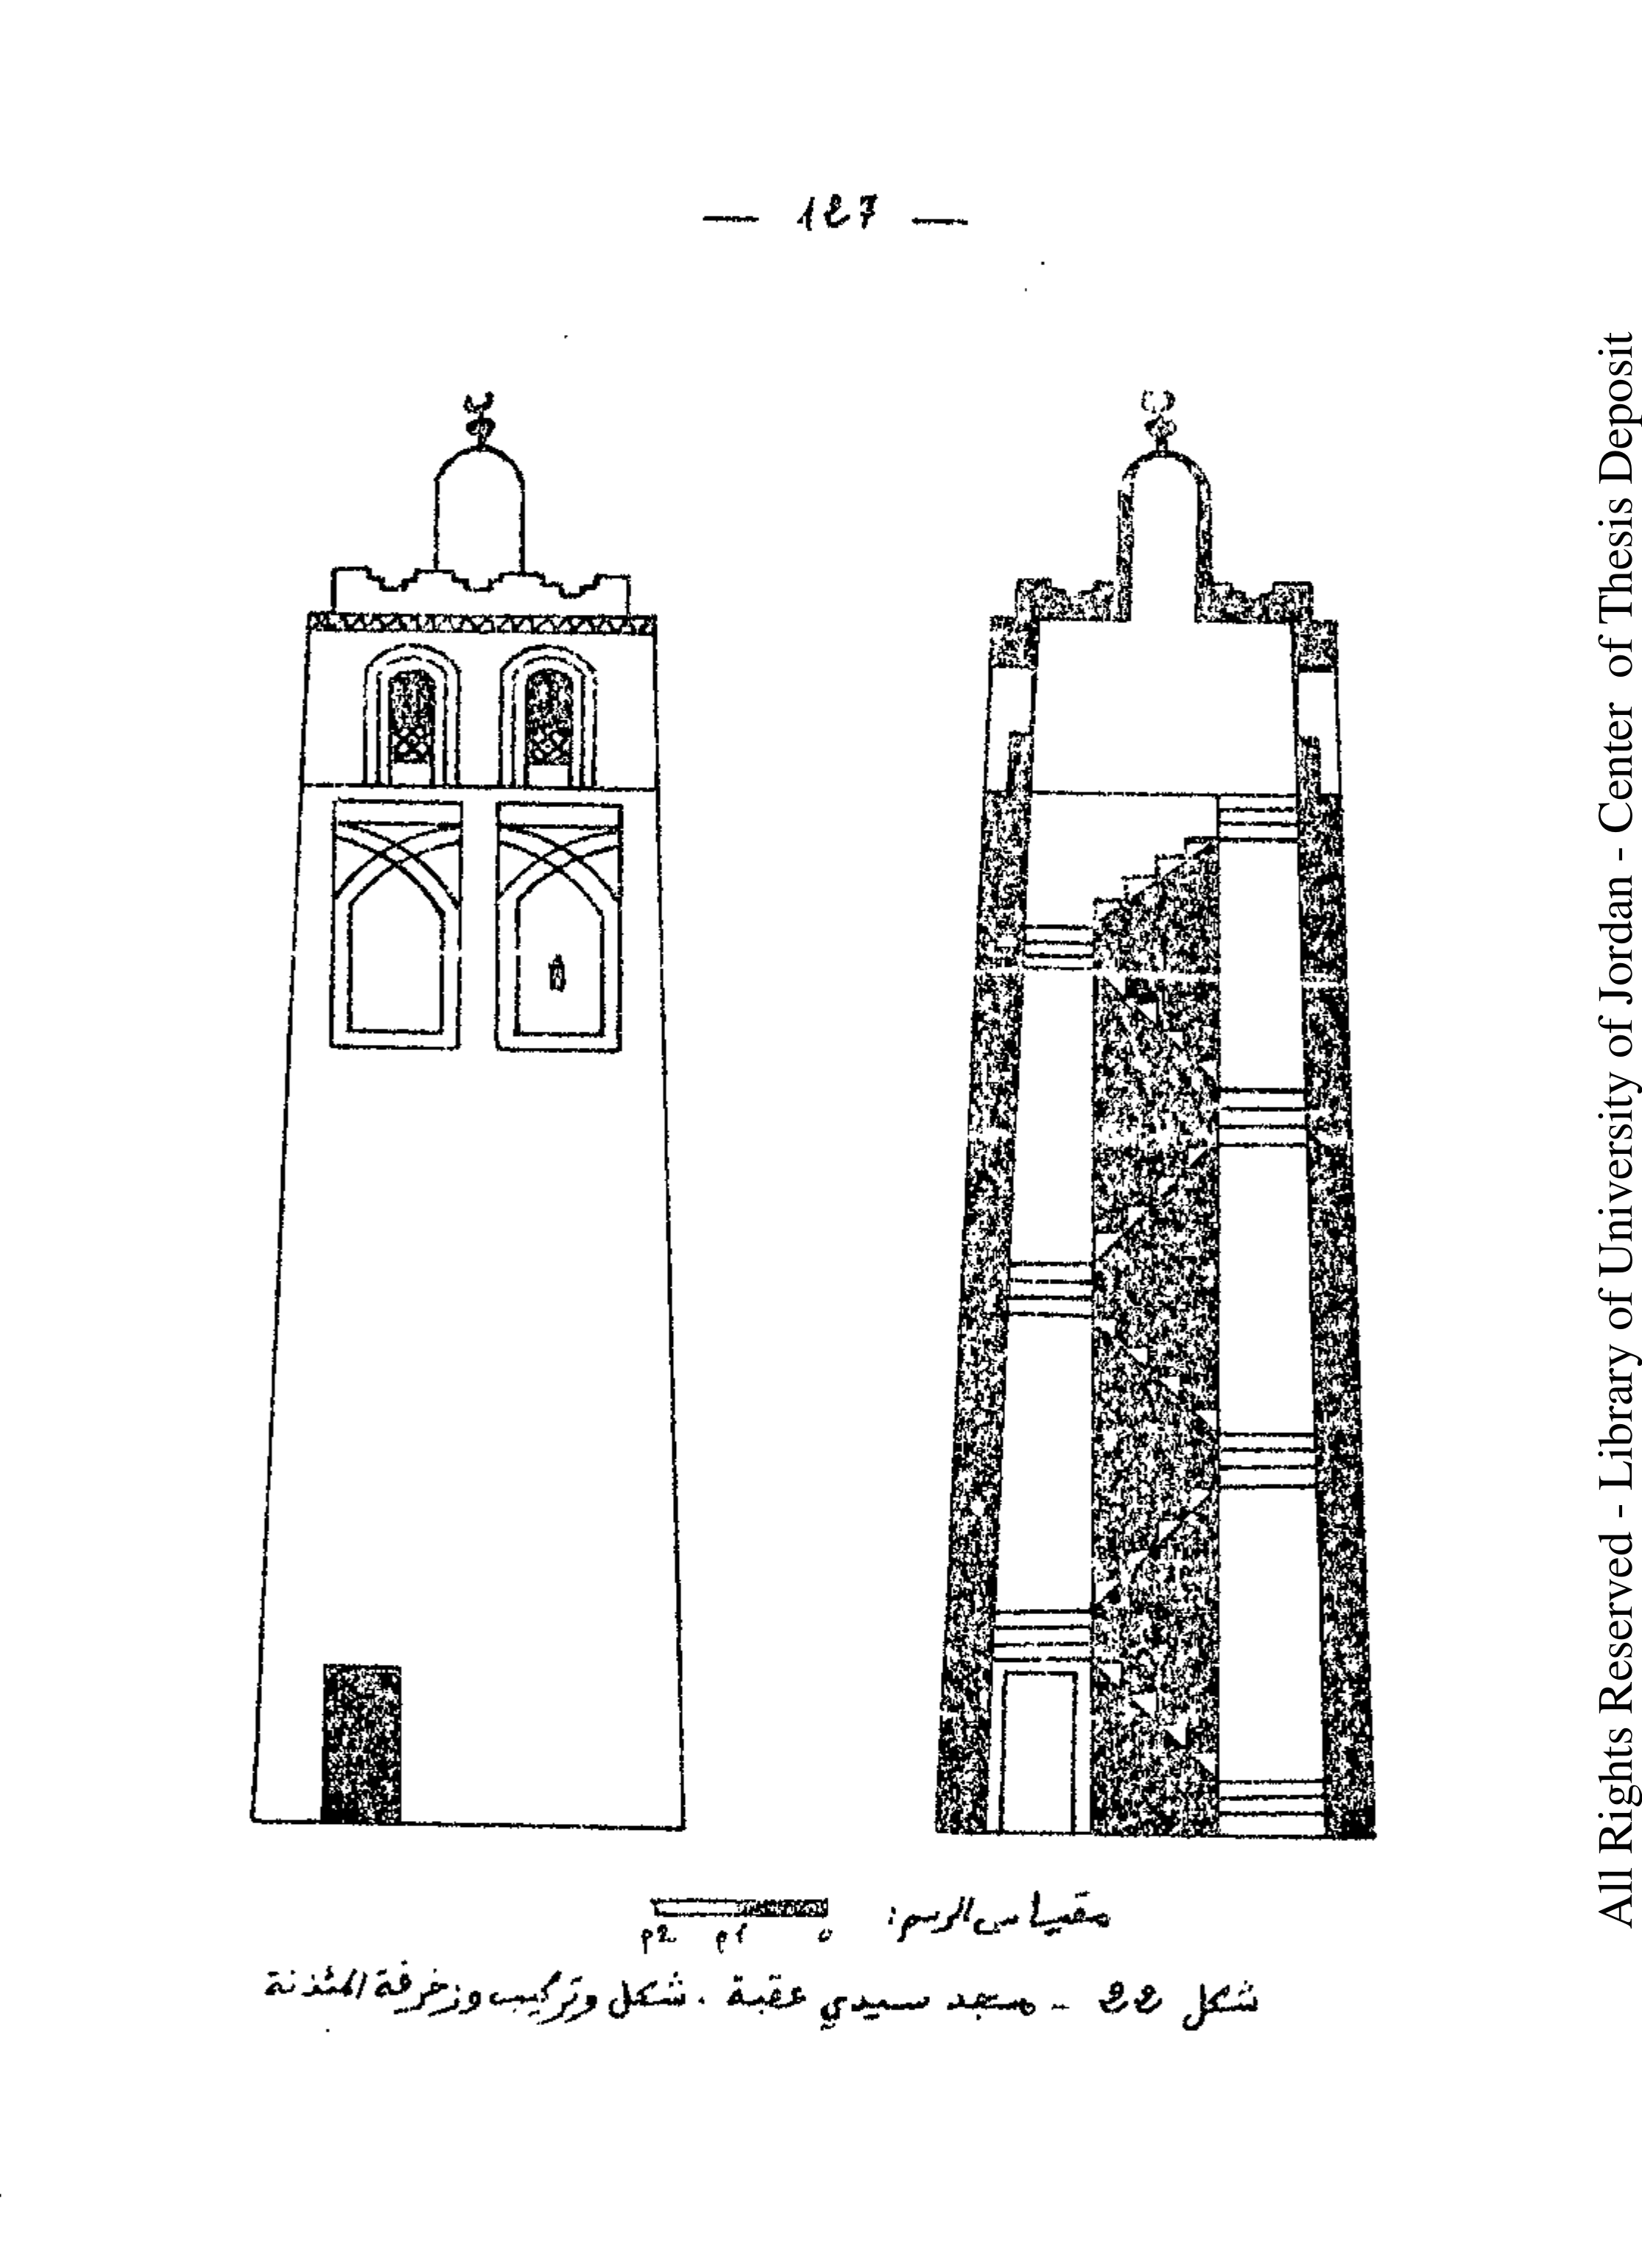 — 127 —
مقياس الرسم:
0 1م 2م
شكل 22 - مسجد سيدي عقبة . شكل وتركيب وزخرفة المئذنة
All Rights Reserved - Library of University of Jordan - Center of Thesis Deposit